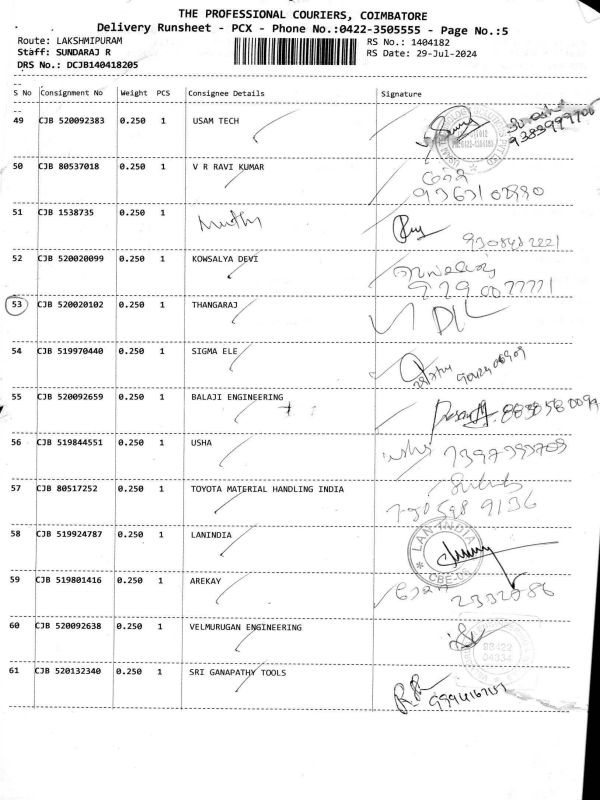 THE PROFESSIONAL COURIERS, COIMBATORE
Delivery Runsheet - PCX - Phone No.:0422-3505555 - Page No.:5
Route: LAKSHMIPURAM RS No.: 1404182
Staff: SUNDARAJ R RS Date: 29-Jul-2024
DRS No.: DCJB140418205
S No Consignment No Weight PCS Consignee Details Signature
49 CJB 520092383 0.250 1 USAM TECH
9383999706
50 CJB 80537018 0.250 1 V R RAVI KUMAR
51 CJB 1538735 0.250 1 Muthy
52 CJB 520020099 0.250 1 KOWSALYA DEVI
53 CJB 520020102 0.250 1 THANGARAJ
54 CJB 519970440 0.250 1 SIGMA ELE
55 CJB 520092659 0.250 1 BALAJI ENGINEERING
56 CJB 519844551 0.250 1 USHA
57 CJB 80517252 0.250 1 TOYOTA MATERIAL HANDLING INDIA
58 CJB 519924787 0.250 1 LANINDIA LAN INDIA
59 CJB 519801416 0.250 1 AREKAY
60 CJB 520092638 0.250 1 VELMURUGAN ENGINEERING
61 CJB 520132340 0.250 1 SRI GANAPATHY TOOLS